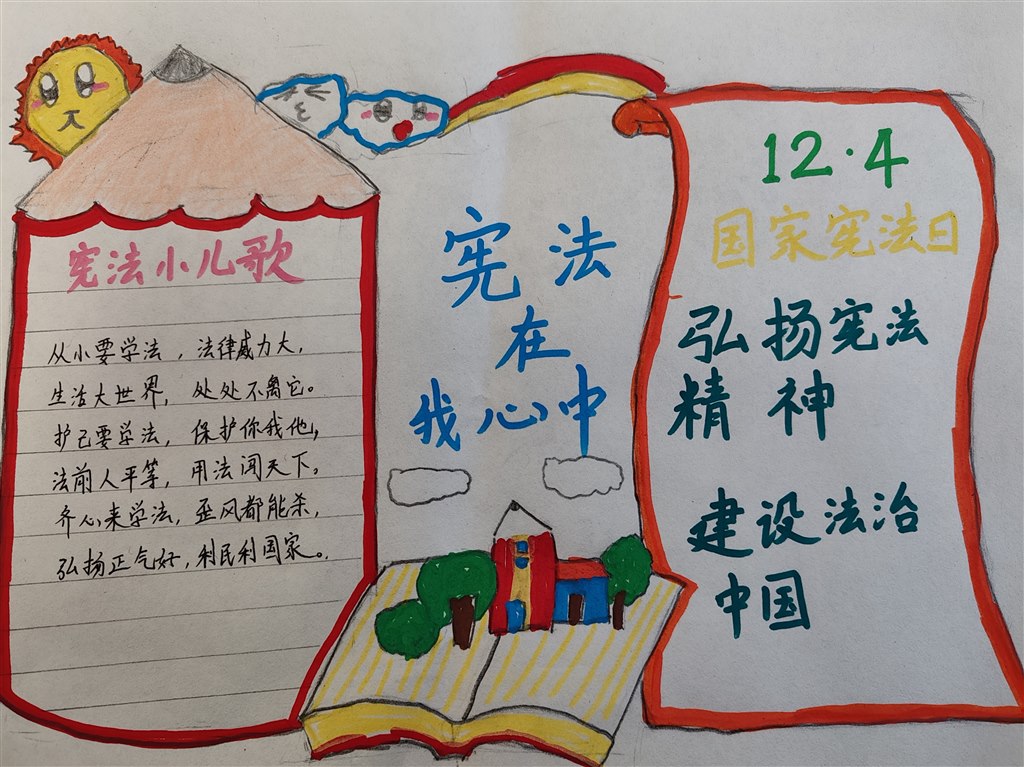 宪法小儿歌
从小要学法，法律威力大，
生活大世界，处处不离它。
护己要学法，保护你我他，
法前人平等，用法闯天下。
齐心来学法，歪风都能杀，
弘扬正气好，利民利国家。
宪法
在
我心中
12·4
国家宪法日
弘扬宪法
精神
建设法治
中国